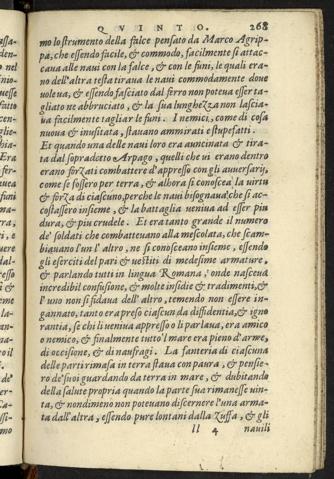 QVINTO. 268
mo lo strumento della falce pensato da Marco Agrip-
pa, che essendo facile, & commodo, facilmente si attac-
caua alle naui con la falce, & con le funi, le quali era-
no dell'altra testa tiraua le naui commodamente doue
voleua, & essendo fasciato dal ferro non poteua esser ta-
gliato ne abbruciato, & la sua lunghezza non lascia-
ua facilmente tagliar le funi. I nemici, come di cosa
nuoua & inusitata, stauano ammirati e stupefatti.
Et quando una delle naui loro era auncinata & tira-
ta dal sopradetto Arpago, quelli che ui erano dentro
erano forzati combattere d'appresso con gli auuersarij,
come se fossero per terra, & alhora si conoscea la uirtù
& forza di ciascuno, perche le naui bisognaua che si ac-
costassero insieme, & la battaglia neniua ad esser piu
dura, & piu crudele. Et era tanto grande il numero
de' soldati che combatteuano alla mescolata, che scam-
biauano l'un l'altro, ne si conosceano insieme, essendo
gli eserciti del pari & uestiti di medesime armature,
& parlando tutti in lingua Romana, onde nasceua
incredibil confusione, & molte insidie & tradimenti, &
l'uno non si fidaua dell'altro, temendo non essere in-
gannato, tanto era preso ciascun da diffidentia, & igno
rantia, se chi li ueniua appresso o li parlaua, era amico
o nemico, & finalmente tutto'l mare era pieno d'arme,
di occisione, & di naufragi. La fanteria di ciascuna
delle parti rimasa in terra staua con paura, & pensie-
ro de' suoi guardando da terra in mare, & dubitando
della salute propria quando la parte sua rimanesse uin-
ta, & nondimeno non poteuano discernere l'una arma-
ta dall'altra, essendo pure lontani dalla zuffa, & gli
ll 4 nauili